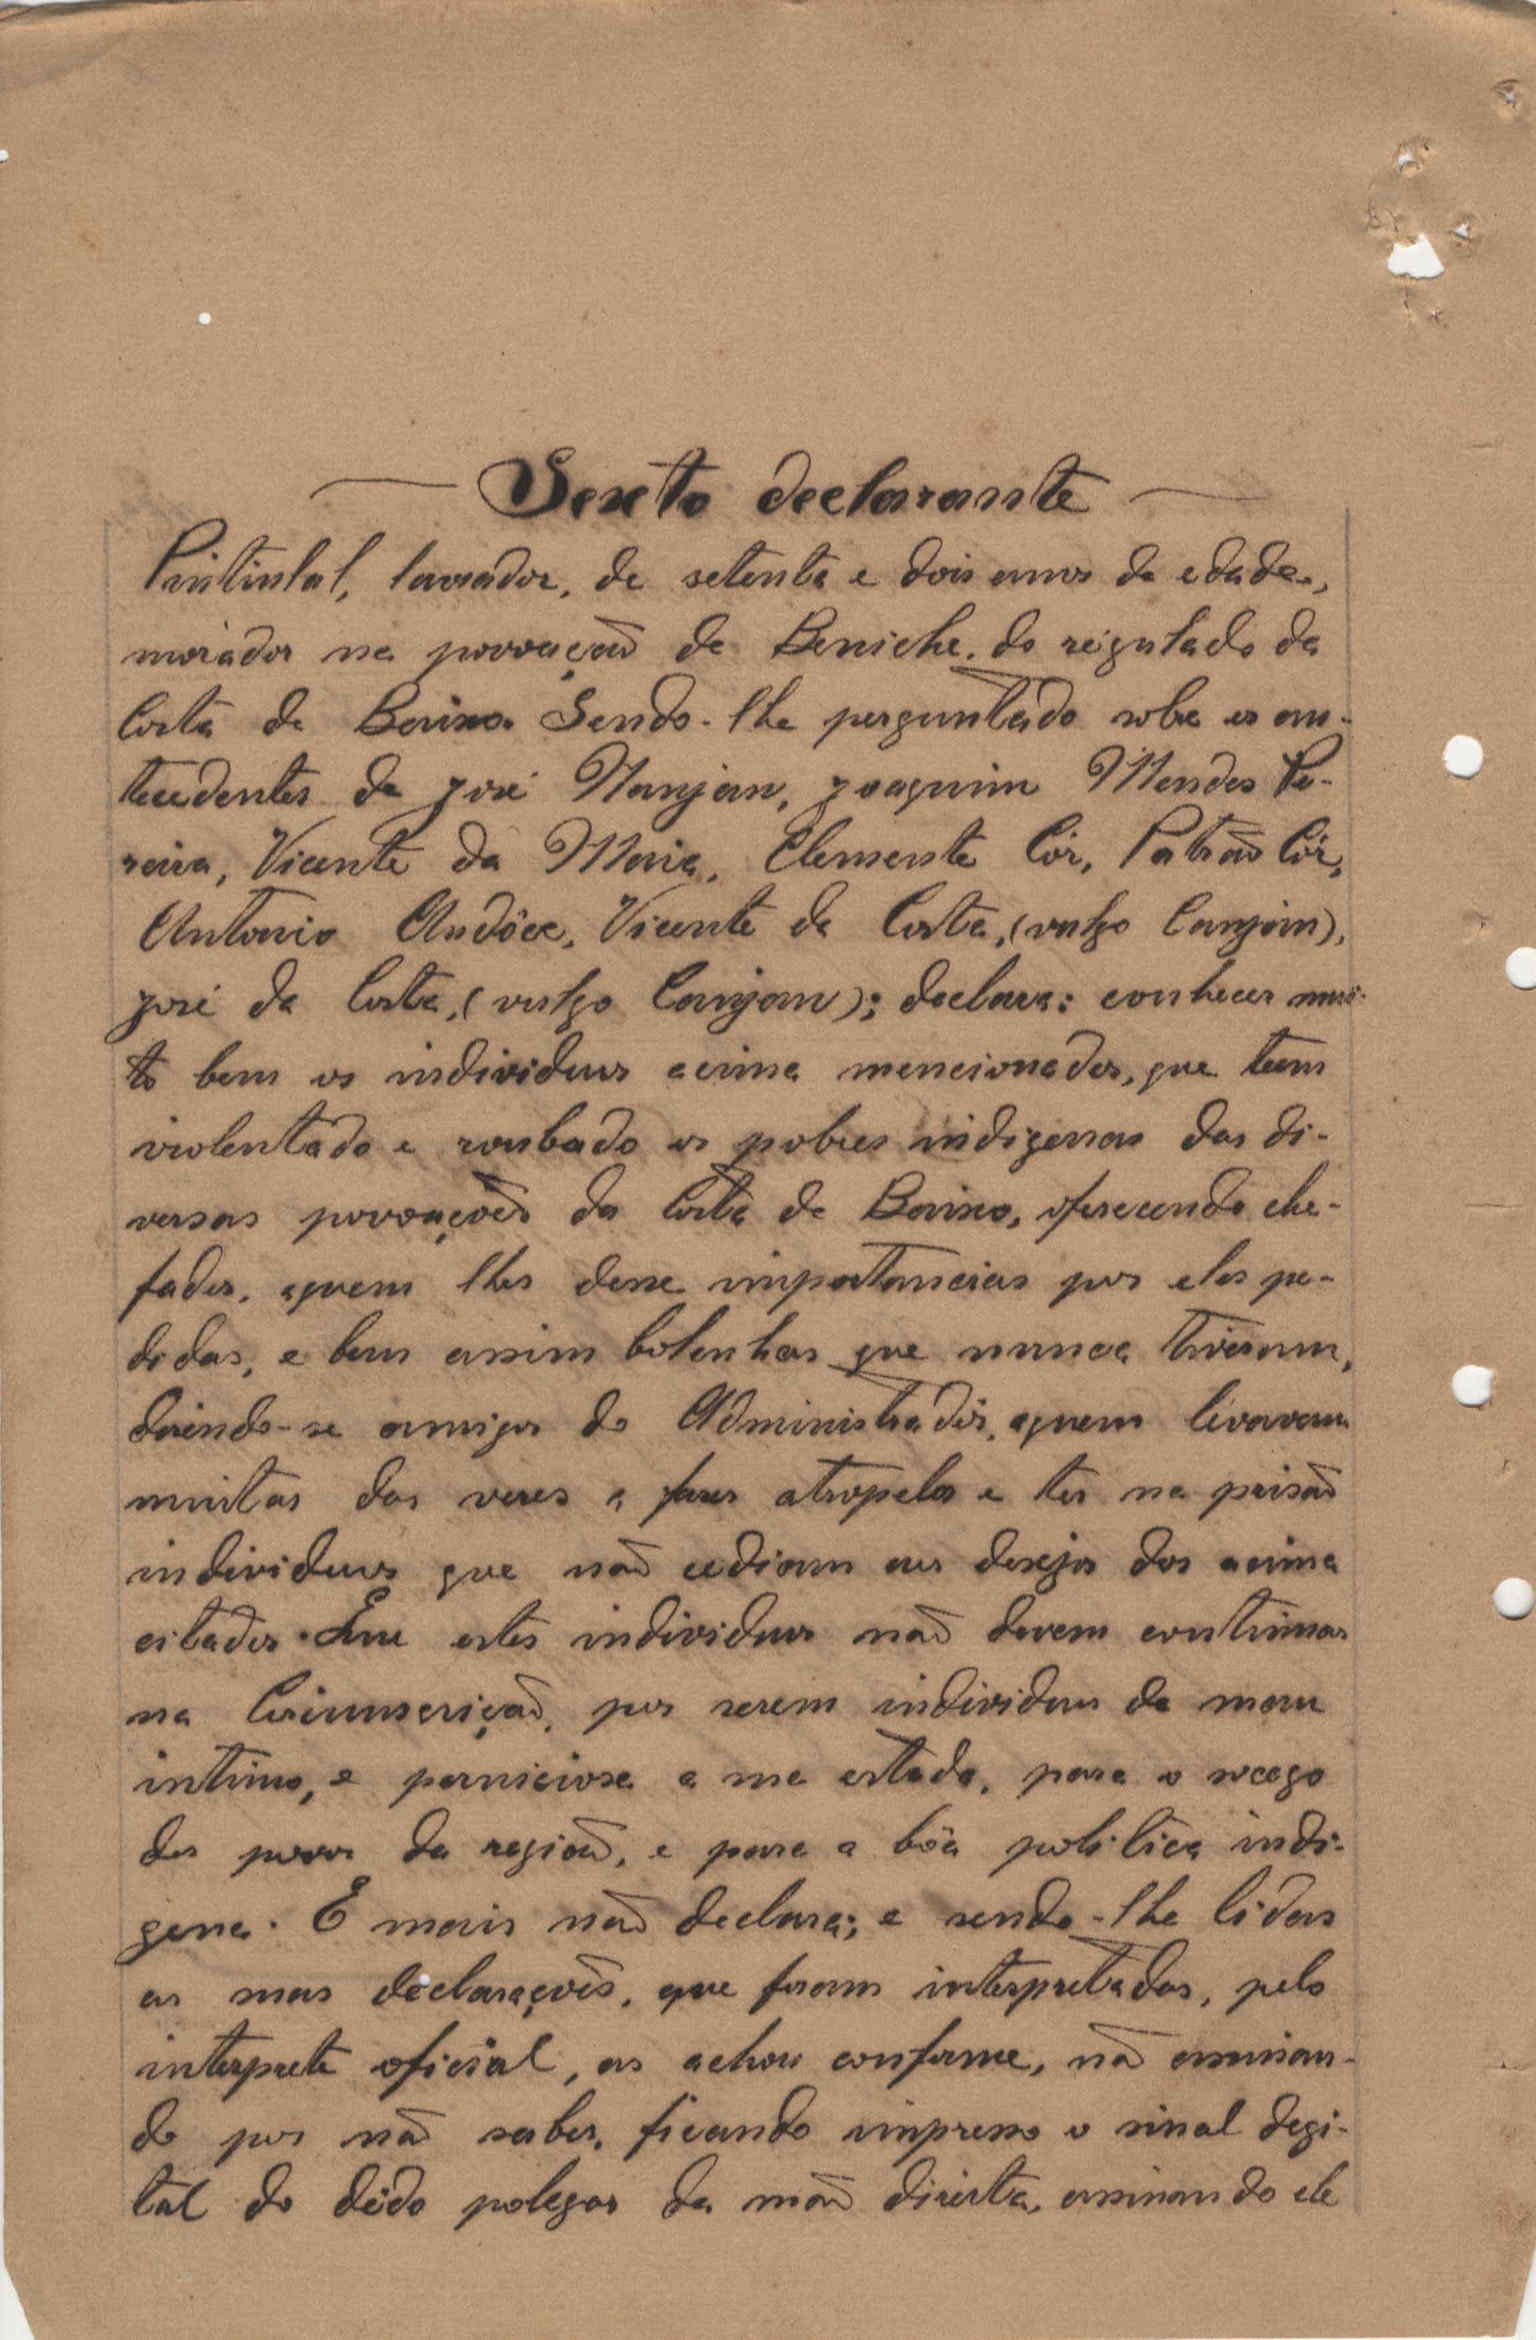 Sexto declarante
lavrador, de setenta e dois anos de edade,
morador na povoação de Beniche, do regulado da
Costa de Baixo. Sendo-lhe perguntado sobre os an-
tecedentes de José Nanjan, Joaquim Mendes Pe-
reira, Vicente da Maia, Clemente Côr, Patrão Côr,
Antonio Andôce, Vicente da Costa, (vulgo Canjan),
José da Costa, (vulgo Canjan); declara: conhecer mui-
to bem os individuos acima mencionados, que teem
violentado e roubado os pobres indigenas das di-
versas povoações da Costa de Baixo, oferecendo che-
fados, aquem lhes desse importancias por eles pe-
didas, e bem assim bolanhas que nunca tiveram,
dizendo-se amigos do Administradôr, aquem levavam
muitas das vezes a fazer atropelos e ter na prisão
individuos que não cediam aos desejos dos acima
citados. Que estes individuos não devem continuar
na Circunscrição, por serem individuos de mau
intimo, e perniciosa a sua estada, para o socego
dos povos da região, e para a bôa politica indi-
gena. E mais não declara; e sendo-lhe lidas
as suas declarações, que foram interpretadas, pelo
interprete oficial, as achou conforme, não assinan-
do por não saber, ficando impresso o sinal degi-
tal do dêdo polegar da mão direita, assinando ele